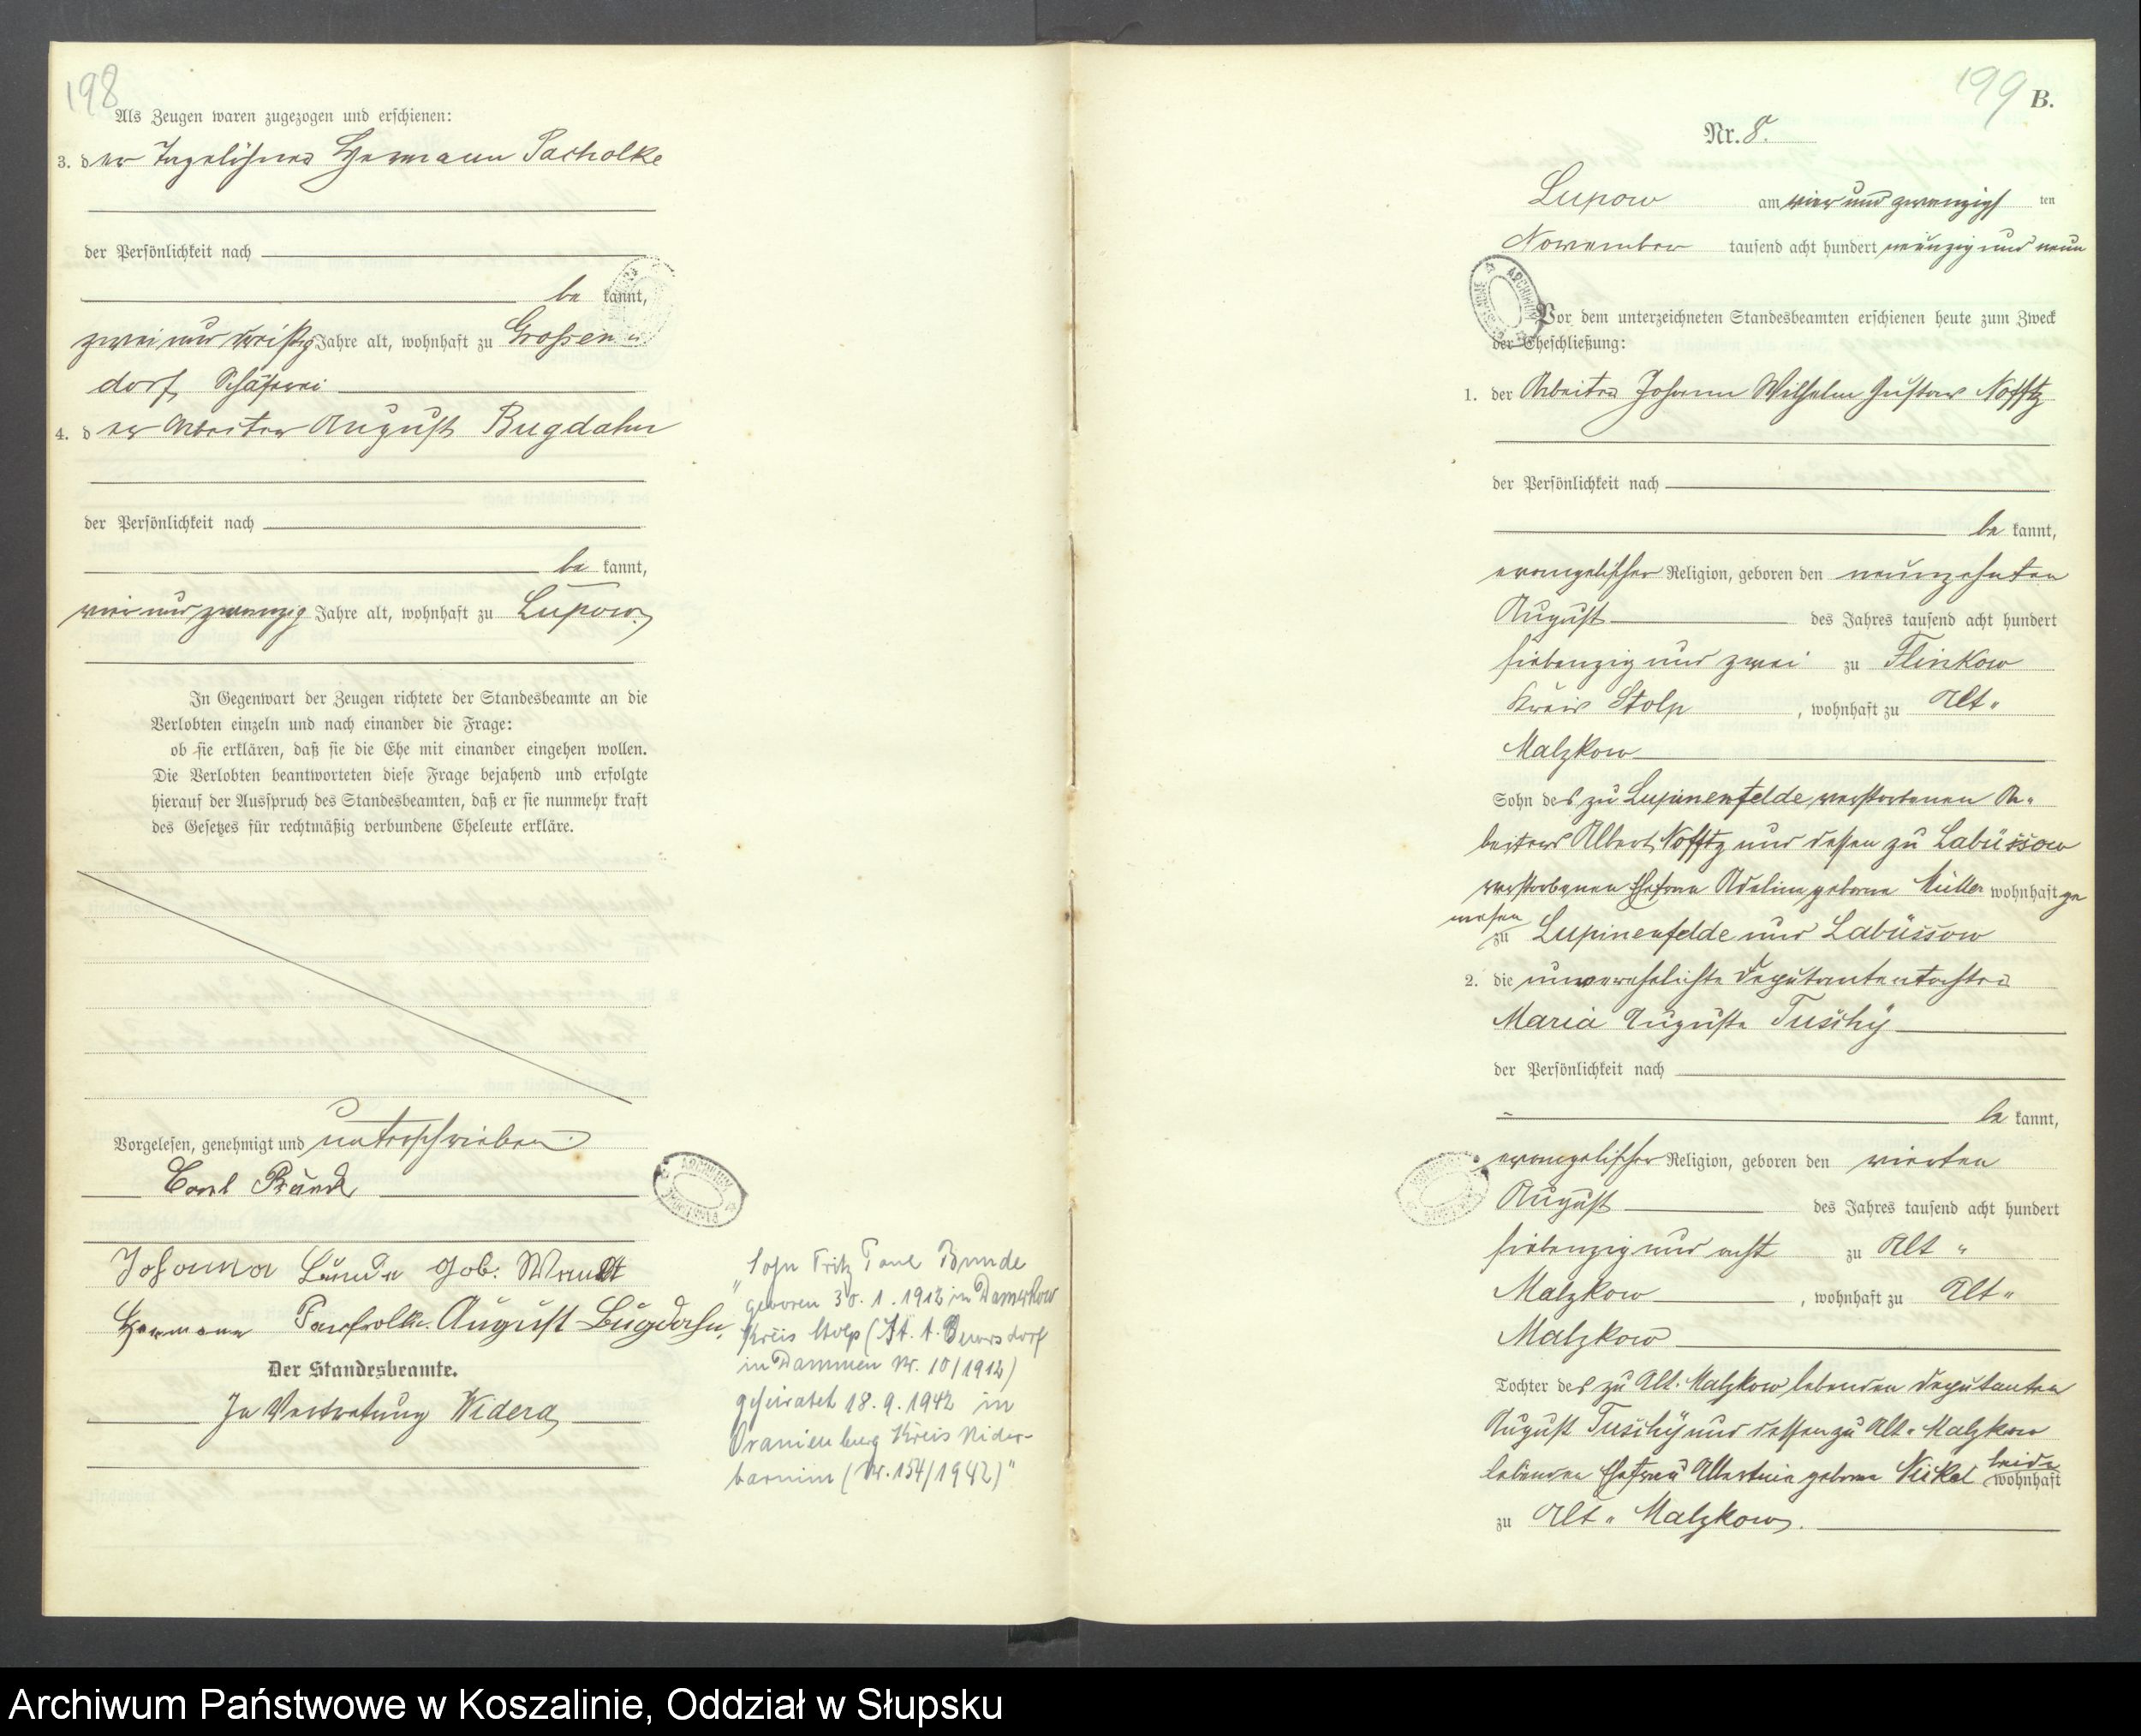 198
Als Zeugen waren zugezogen und erschienen:
3. der Tagelöhner Hermann Pacholke
der Persönlichkeit nach
be kannt,
zwei und dreißig Jahre alt, wohnhaft zu Großen
dorf, Schäferei
4. der Arbeiter August Bugdahn
der Persönlichkeit nach
be kannt,
vier und zwanzig Jahre alt, wohnhaft zu Lupow.
In Gegenwart der Zeugen richtete der Standesbeamte an die
Verlobten einzeln und nach einander die Frage:
ob sie erklären, daß sie die Ehe mit einander eingehen wollen.
Die Verlobten beantworteten diese Frage bejahend und erfolgte
hierauf der Ausspruch des Standesbeamten, daß er sie nunmehr kraft
des Gesetzes für rechtmäßig verbundene Eheleute erkläre.
Vorgelesen, genehmigt und unterschrieben.
Carl
Johanna geb.
Hermann Pacholke. August Bugdahn,
Der Standesbeamte.
In Vertretung Widera
"Sohn Fritz Paul Bunde
geboren 30. 1. 1912 in Damerkow
Kreis Stolp (St. A.
in Dammen Nr. 10/1912)
geheiratet 18. 9. 1942 in
Oranienburg Kreis Nider-
barnim (Nr. 154/1942)"
199
B.
Nr. 8.
Lupow am vier und zwanzigsten
November tausend acht hundert neunzig und neun
Vor dem unterzeichneten Standesbeamten erschienen heute zum Zweck
der Eheschließung:
1. der Arbeiter Johann Wilhelm Gustav Nofftz
der Persönlichkeit nach
be kannt,
evangelischer Religion, geboren den neunzehnten
August des Jahres tausend acht hundert
siebenzig und zwei zu Flinkow
Kreis Stolp, wohnhaft zu Alt-
Malzkow
Sohn des zu Lupinenfelde verstorbenen Ar-
beiters Albert Nofftz und dessen zu Labüssow
verstorbenen Ehefrau Adeline geborne Müller wohnhaft ge
wesen
zu Lupinenfelde und Labüssow
2. die unverehelichte Deputantentochter
Maria Auguste Tuschy
der Persönlichkeit nach
be kannt,
evangelischer Religion, geboren den vierten
August des Jahres tausend acht hundert
siebenzig und acht zu Alt-
Malzkow, wohnhaft zu Alt-
Malzkow
Tochter des zu Alt-Malzkow lebenden Deputanten
August Tuschy und dessen zu Alt-Malzkow
lebenden Ehefrau Albertine geborne beide
wohnhaft
zu Alt-Malzkow.
Archiwum Państwowe w Koszalinie, Oddział w Słupsku